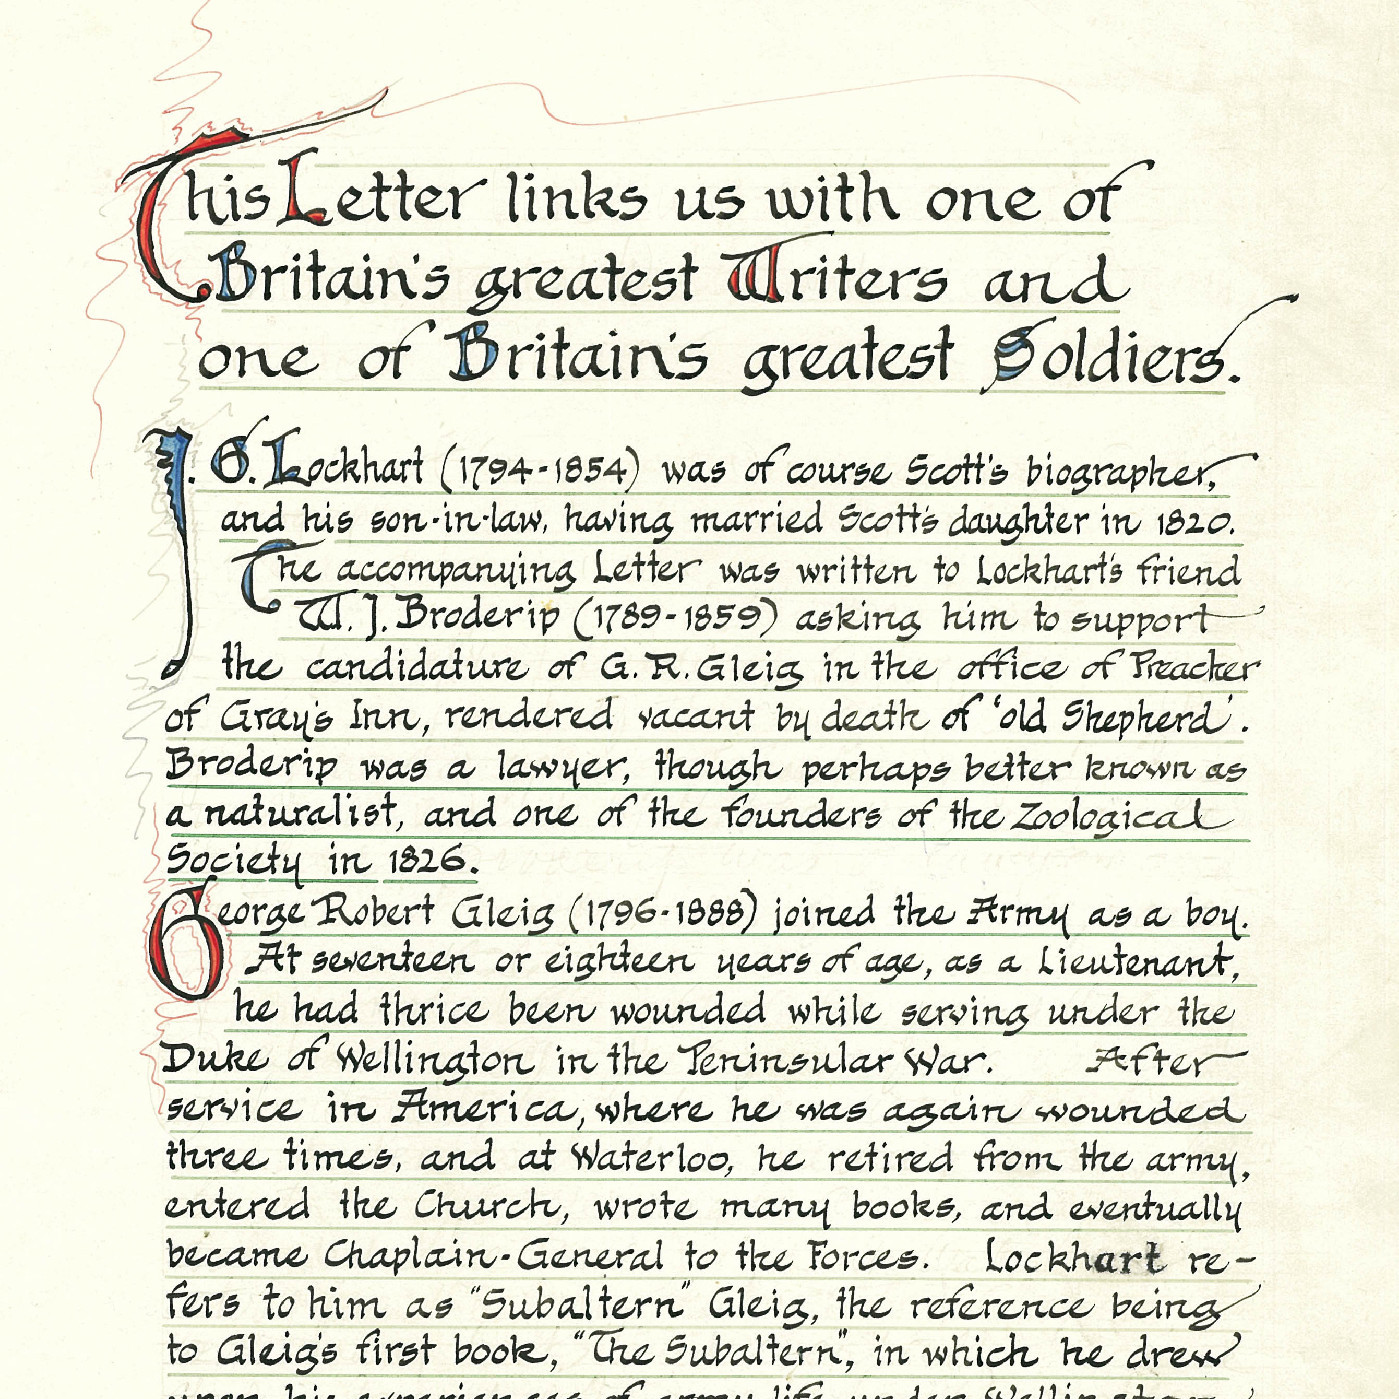 This Letter links us with one of
Britain's greatest Writers and
one of Britain's greatest Soldiers.
J. G. Lockhart (1794-1854) was of course Scott's biographer,
and his son-in-law, having married Scott's daughter in 1820.
The accompanying Letter was written to Lockhart's friend
W. J. Broderip (1789-1859) asking him to support
the candidature of G. R. Gleig in the office of Preacher
of Gray's Inn, rendered vacant by death of 'old Shepherd'.
Broderip was a lawyer, though perhaps better known as
a naturalist, and one of the founders of the Zoological
Society in 1826.
George Robert Gleig (1796-1888) joined the Army as a boy.
At seventeen or eighteen years of age, as a Lieutenant,
he had thrice been wounded while serving under the
Duke of Wellington in the Peninsular War. After
service in America, where he was again wounded
three times, and at Waterloo, he retired from the army,
entered the Church, wrote many books, and eventually
became Chaplain-General to the Forces. Lockhart re-
fers to him as "Subaltern" Gleig, the reference being
to Gleig's first book, "The Subaltern", in which he drew
upon his experiences of army life under Wellington